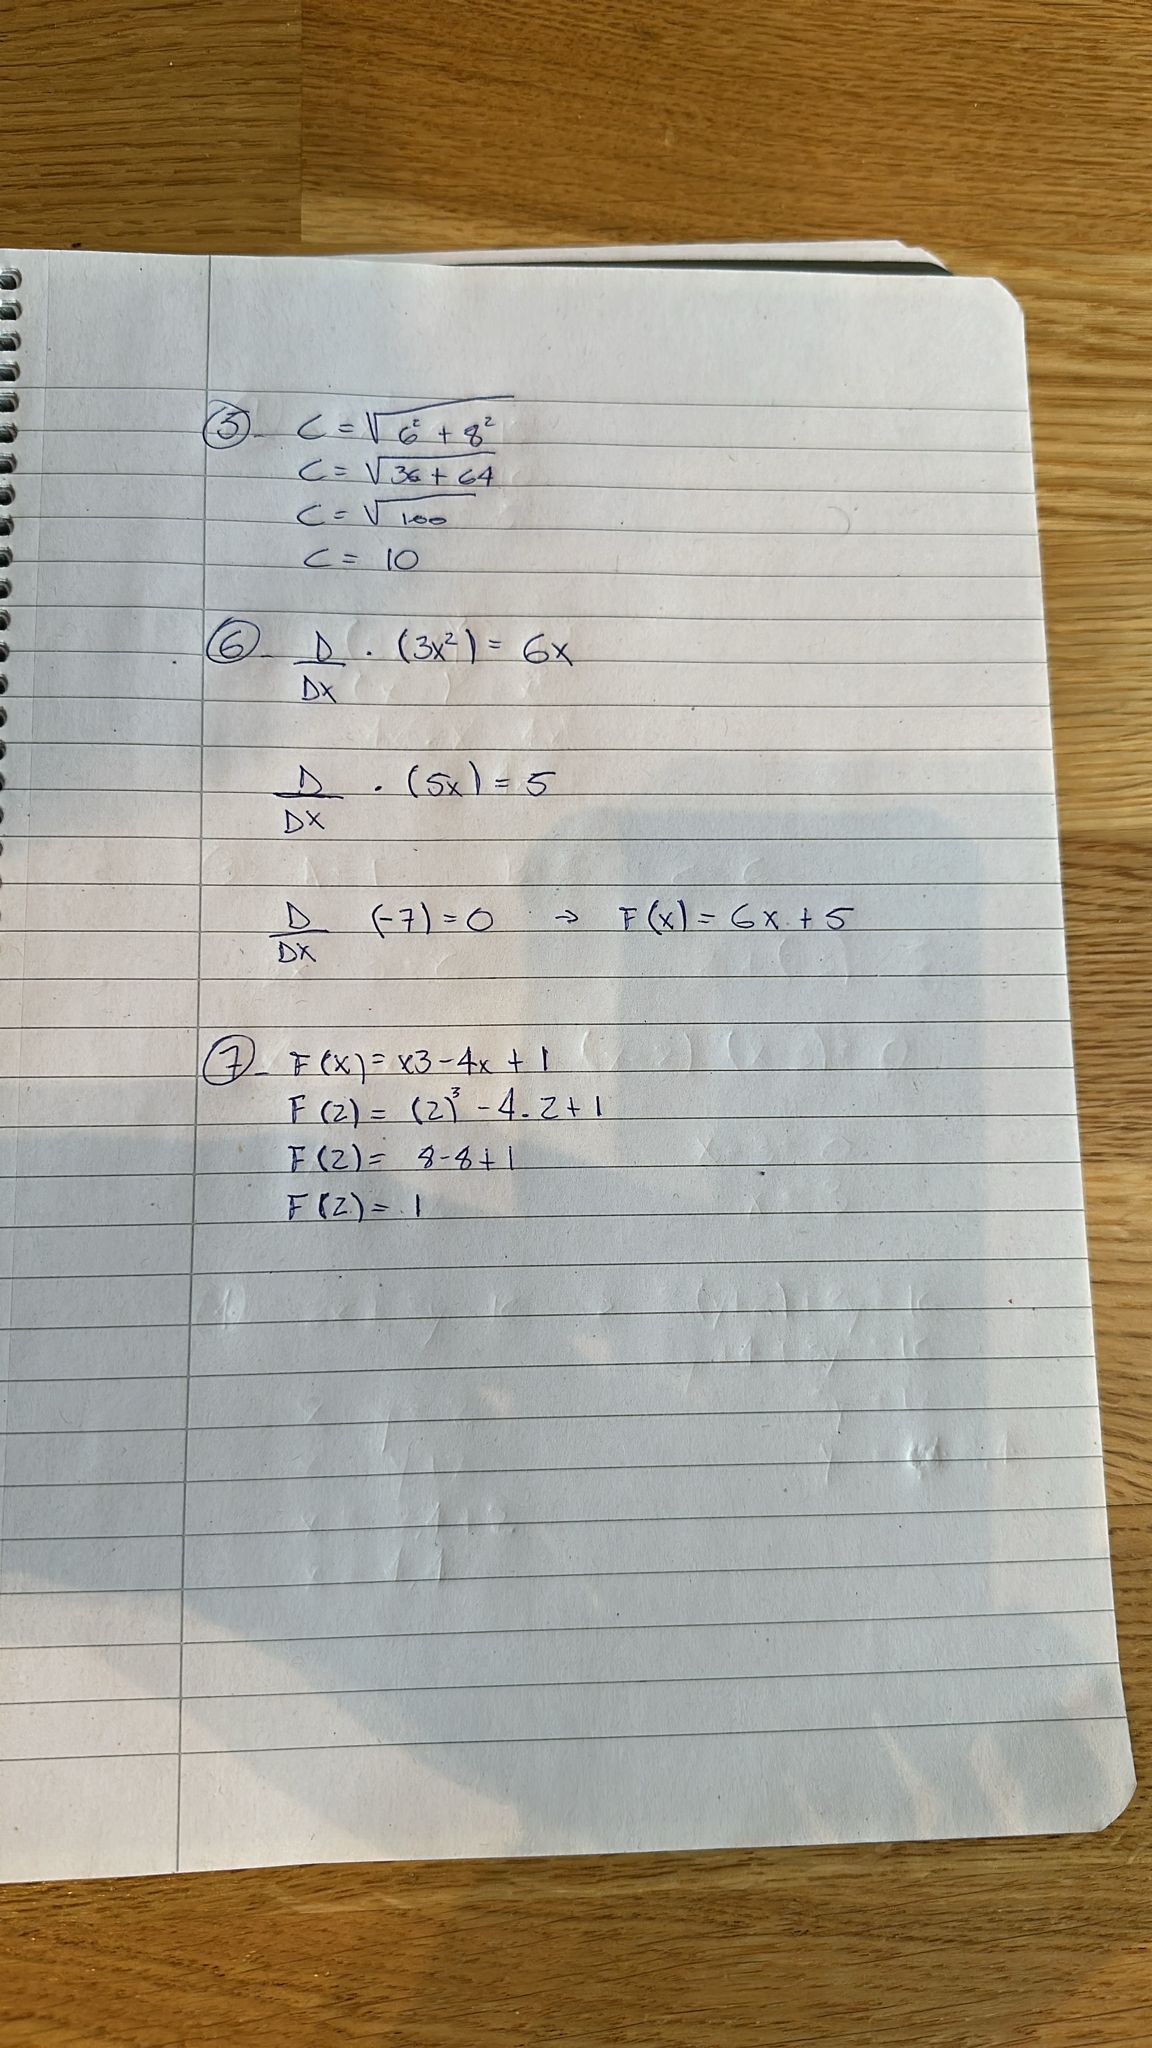 5- C = √6² + 8²
C = √36 + 64
C = √100
C = 10
6- D/DX · (3x²) = 6x
D/DX · (5x) = 5
D/DX (-7) = 0 → F(x) = 6x + 5
7- F(x) = x3 - 4x + 1
F(2) = (2)³ - 4.2 + 1
F(2) = 8-8+1
F(2) = 1